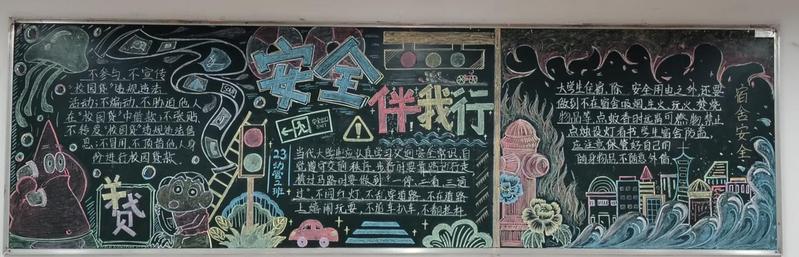 不参与、不宣传
"校园贷"违规违法
活动；不煽动、不胁迫他人
在"校园贷"中借款；不张贴
不转发"校园贷"违规违法信
息；不冒用、不顶替他人身
份进行校园贷款
贷
安全
伴我行
23幼管2班
当代大学生应认真学习交通安全常识，自
觉遵守交通秩序，走行时要靠边行走
横过马路时要做到"一停二看三通
过"，不闯红灯，不乱穿道路，不在道路
上嬉闹玩耍，不追车扒车，不翻栏杆
大学生在宿，除 安全用电之外，还要
做到不在宿舍吸烟，生火，玩火，焚烧
物品等，点蚊香时远离可燃物，禁止
点烛设灯看书，学生宿舍防盗，
应注意保管好自己的
随身物品，不随意外借
宿舍安全